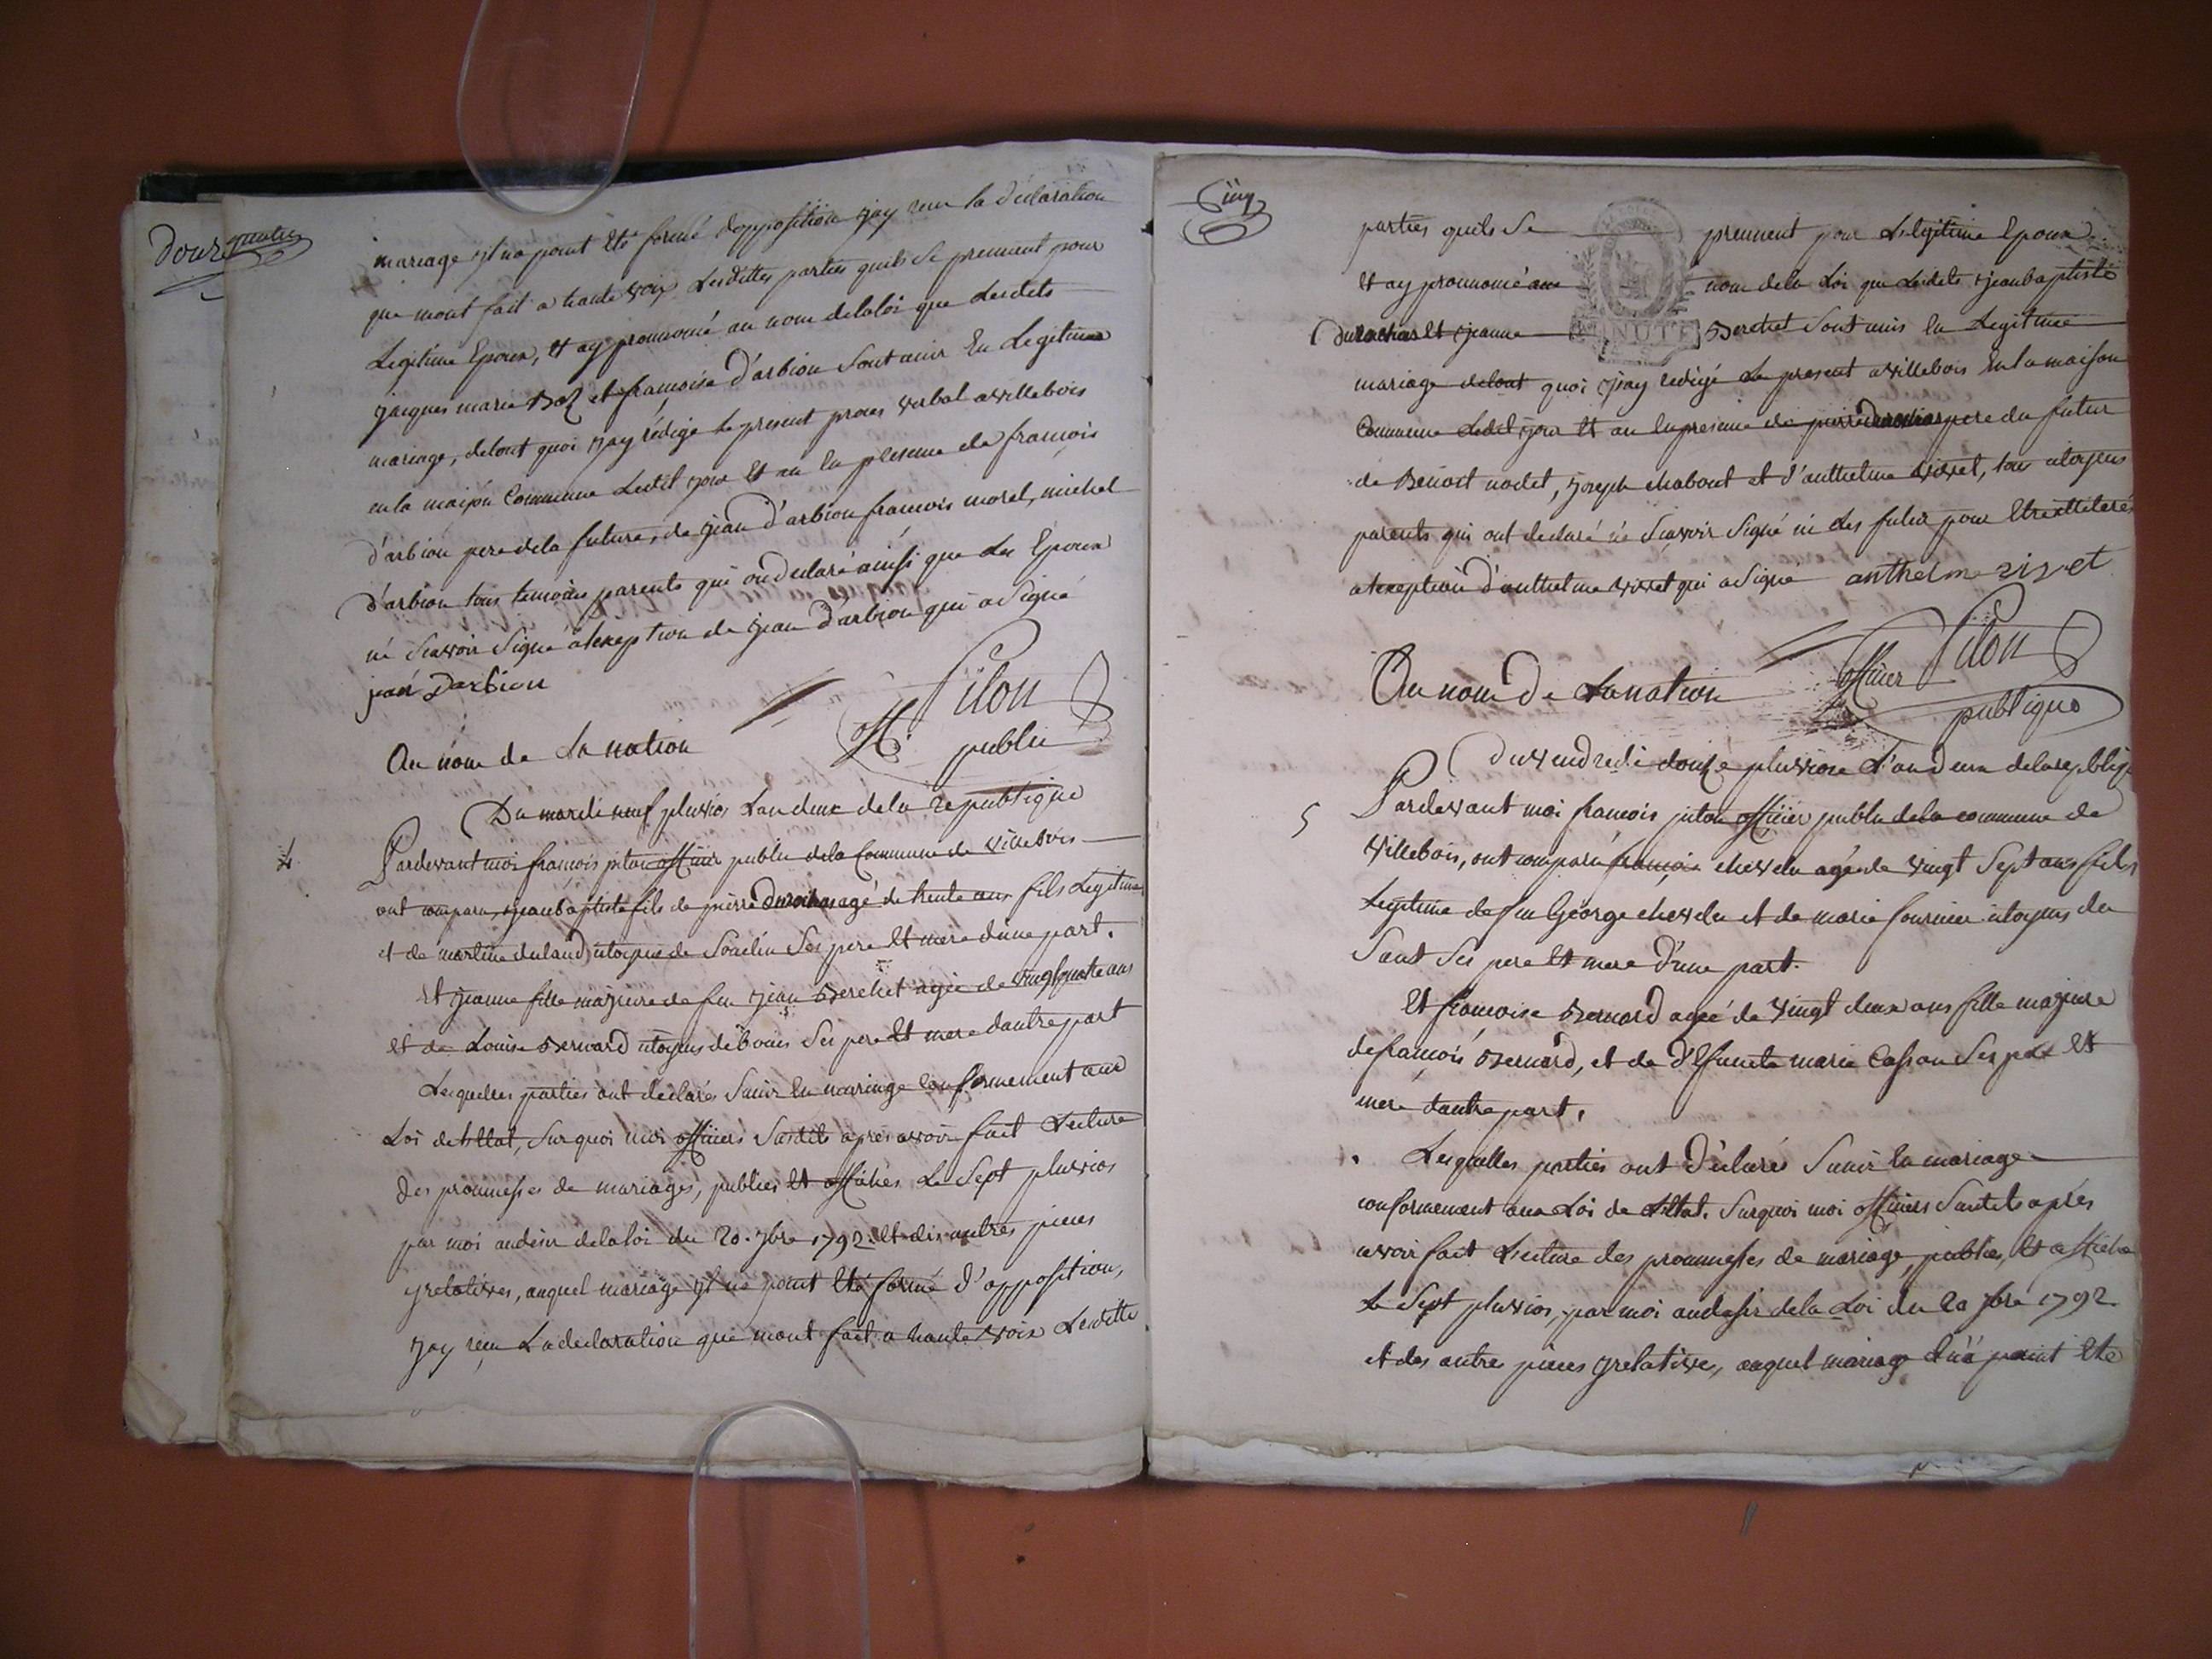 douze
quatre
mariage yl na point eté formé dopposition jay recu la declaration
que mont fait a haute voix Lesdittes parties quils se prennent pour
Legitime Epoux, et ay prononcé au nom delaloi que Lesdits
jacques marie Boz et francoise d'arbion sont unis En Legitime
mariage, detout quoi jay rédigé le present proces verbal avillebois
enla maison Commune Ledit jour Et an En presence de francois
d'arbion pere dela future, de jean d'arbion francois morel, michel
d'arbion tous temoins parents qui on declaré ainsi que Les Epoux
né scavoir signé a Exeption de jean d'arbion qui a signé
jean Darbion
Pilon
off. public
Au nom de La nation
Du mardi neuf pluvios Lan deux dela republique
4
Pardevant moi françois pilon officier public dela Commune de villebois
ont comparu, jeanbaptiste fils de pierre agé de trente ans fils Legitime
et de martine dulaud citoyens de Souclin Ses pere Et mere d'une part.
Et jeanne fille majeure de feu jean Berchet agée de vingtquatre ans
Et de Louise Bernard citoyens de bouis Ses pere Et mere dautre part
Lesquelles parties ont declarés Sunir En mariage conformement aux
Loi de L'Etat, Sur quoi moi officiers Susdits après avoir fait Lecture
des prommesses de mariages, publiés Et affichés Le Sept pluvios
par moi audesir delaloi du 20. 7bre 1792. Et des autres pieces
yrelatives, auquel mariage yl na point Eté formé d'opposition,
jay reçu La declaration que mont fait a haute voix Lesditte
Cinq
parties quils Se prennent pour Légitime Epoux
Et ay prononcé au nom dela Loi que Lesdits jeanbaptiste
MINUTE
Et jeanne Berchet Sont unis En Legitime
mariage detout quoi jay redigé Le present avillebois En la maison
Commune Ledit jour Et an En presence de pierre pere du futur
de Benoit nodet, joseph chabout et d'anthelme vizet, tous citoyens
parents qui ont declaré né Scavoir Signé ni Les futur pour
a Exeption d'anthelme vizet qui a Signé anthelm vizet
Au nom De La nation
Pilon
officier publique
Du vendredi douze pluviose L'an deux dela republiq
5
Pardevant moi francois pilon officier public dela commune de
villebois, ont comparu françois chevelu agé de vingt Sept ans fils
Legitime de feu George chevelu et de marie fournier citoyens de
Saut Ses pere Et mere D'une part.
Et francoise Bernard agée de vingt deux ans fille majeure
defrançois Bernard, et de d'Efuncte marie Cassou Ses pere Et
mere dautre part.
Lesquelles parties ont D'éclarés Sunir En mariage
conformement aux Loi de L'Etat. Surquoi moi officiers Susdits après
avoir fait Lecture des prommesses de mariage, publiés, Et affiche
Le Sept pluvios, par moi audesir dela Loi du 20 7bre 1792
et des autres pieces yrelatives, auquel mariage il n'a point Eté